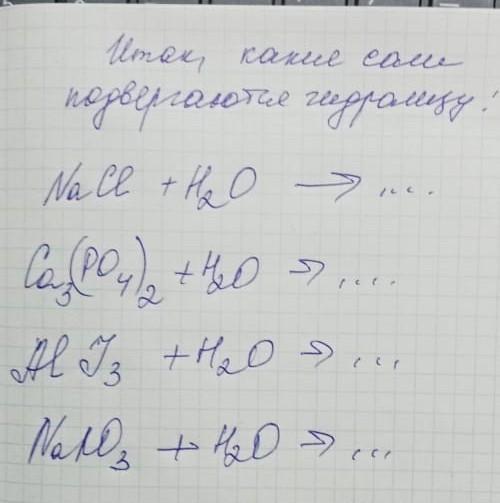 Итак, какие соли
подвергаются гидролизу!
NaCl + H₂O → ....
Ca₃(PO₄)₂ + H₂O → ....
Al J₃ + H₂O → ...
+ H₂O → ...